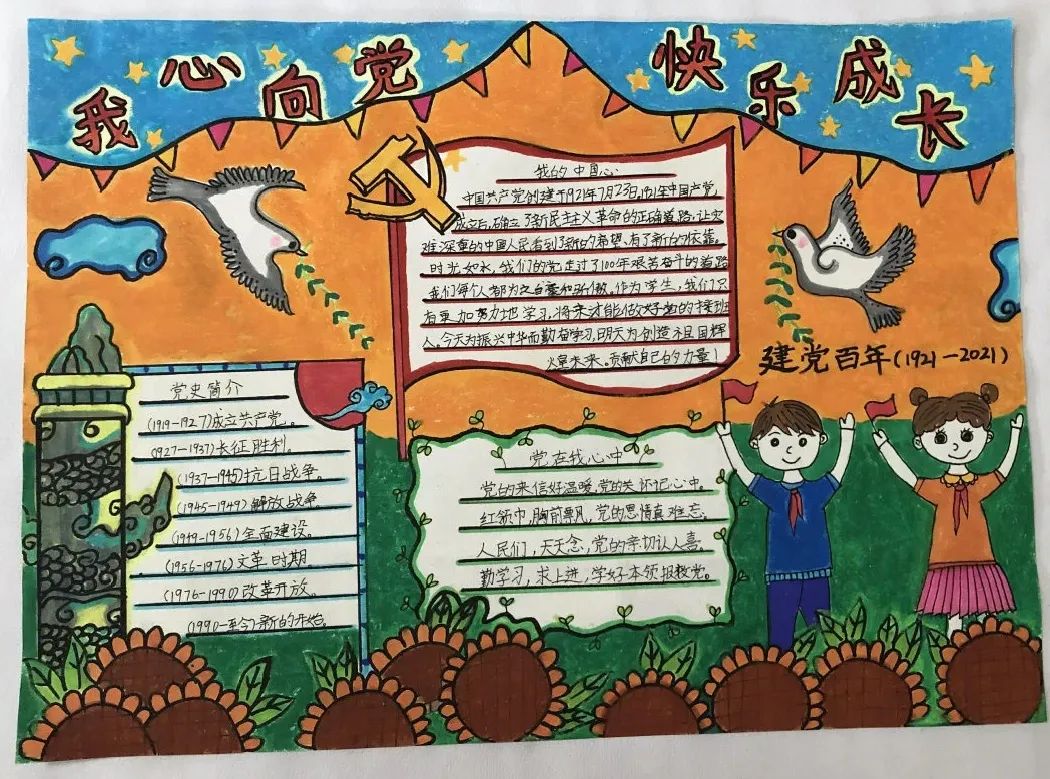 我心向党 快乐成长
我的中国心
中国共产党创建于1921年7月23日,1921年中国产党
成立后,确立了新民主主义革命的正确道路,让灾
难深重的中国人民看到了新的希望、有了新的依靠。
时光如水,我们的党走过了100年艰苦奋斗的道路
我们每个人都为之自豪和骄傲。作为学生,我们只
有更加努力地学习,将来才能做好党的接班
人。今天为振兴中华而勤奋学习,明天为创造祖国辉
煌未来。贡献自己的力量!
建党百年(1921—2021)
党史简介
(1919-1927)成立共产党。
(1927-1937)长征胜利。
(1937-1945)抗日战争。
(1945-1949)解放战争。
(1949-1956)全面建设。
(1956-1976)文革时期
(1976-1990)改革开放。
(1990-至今)新的开始。
党在我心中
党的来信好温暖,党的关怀记心中。
红领巾,胸前飘,党的恩情真难忘。
人民们,天天念,党的亲切认人喜
勤学习,求上进,学好本领报效党。